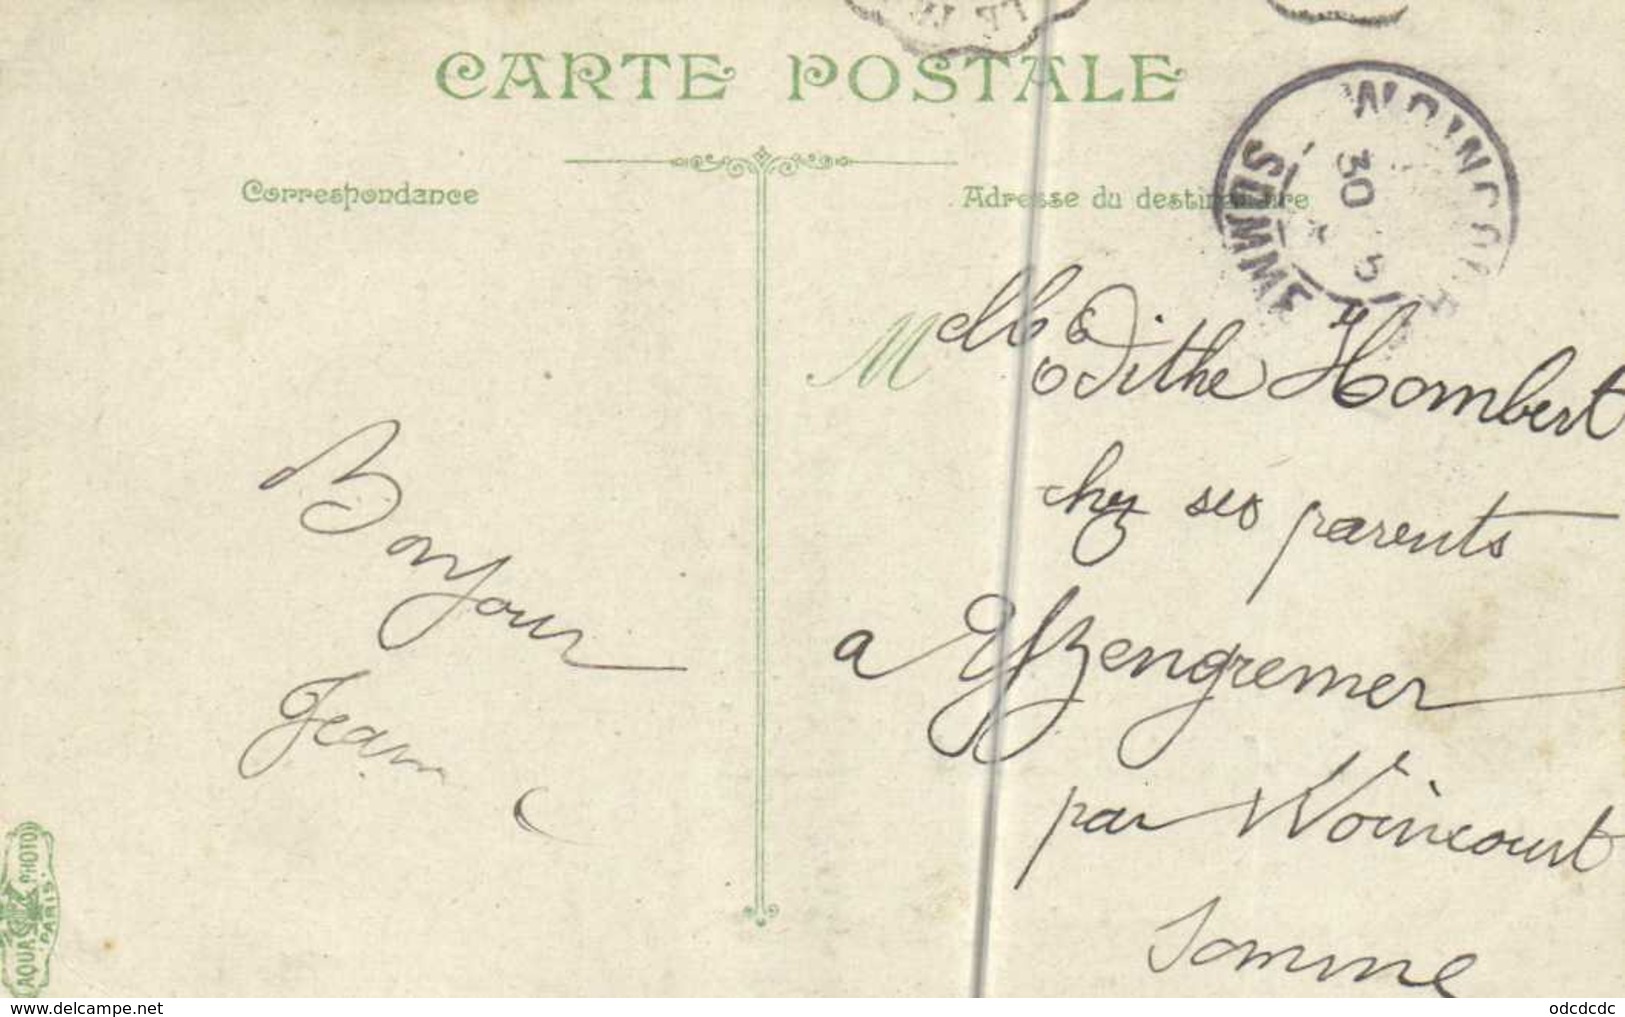 CARTE POSTALE
Correspondance
Adresse du destinataire
SOMME
30
Melle Edithe Hombert
chez ses parents
a Yzengremer
par Woincourt
Somme
Bonjour
Jean
AQUA PHOTO
PARIS
www.delcampe.net
odcdcdc